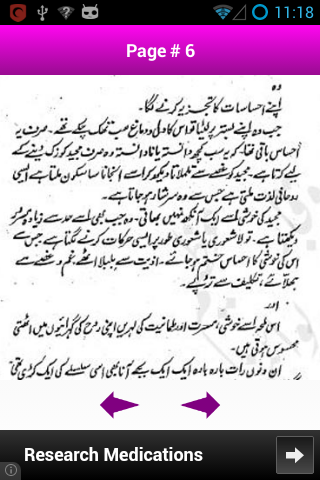 11:18
Page # 6
وہ
اپنے احساسات کا تجزیہ کرنے لگا۔
جب وہ اپنے بستر پر لیٹا تو اس کا دل و دماغ عجب تھک چکے تھے۔ صرف یہ
احساس باقی تھا کہ یہ سب کچھ دانستہ یا نادانستہ وہ صرف مجید کو زک دینے کے
لیے کرتا ہے۔ مجید کو غصے سے تلملاتا دیکھ کر اسے انجانا سا سکون ملتا ہے ایسی
روحانی لذت ملتی ہے جس سے وہ سرشار ہو جاتا ہے۔
مجید کی خوشی اسے ایک آنکھ نہیں بھاتی۔ وہ جب بھی اسے حد سے زیادہ
دیکھتا ہے۔ تو لاشعوری یا شعوری طور پر ایسی حرکات کرنے لگتا ہے جس سے
اس کی خوشی کا احساس ختم ہو جائے۔ اذیت سے بلبلا اٹھے، غم و غصے سے
جھلائے، تکلیف سے تڑپے۔
اور
اس لمحہ اسے خوشی، مسرت اور طمانیت کی لہریں اپنی روح کی گہرائیوں میں اٹھتی
محسوس ہوتی ہیں۔
ان دنوں رات بارہ بارہ ایک ایک بجے آنا بھی اسی سلسلے کی ایک کڑی تھی
Research Medications